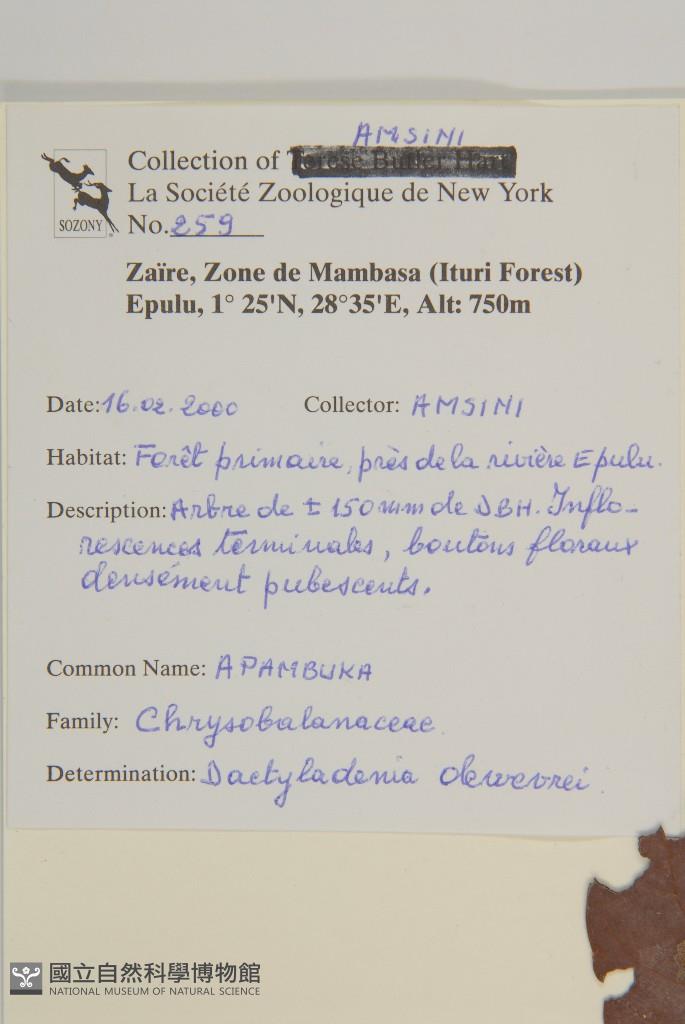 AMSINI
Collection of Terese Butler Hart
La Société Zoologique de New York
SOZONY
No. 259
Zaïre, Zone de Mambasa (Ituri Forest)
Epulu, 1° 25'N, 28°35'E, Alt: 750m
Date: 16.02.2000 Collector: AMSINI
Habitat: Forêt primaire, près de la rivière Epulu.
Description: Arbre de ± 150mm de DBH. Inflo-
rescences terminales, boutons floraux
densément pubescents.
Common Name: APAMBUKA
Family: Chrysobalanaceae
Determination: Dactyladenia dewevrei
國立自然科學博物館
NATIONAL MUSEUM OF NATURAL SCIENCE